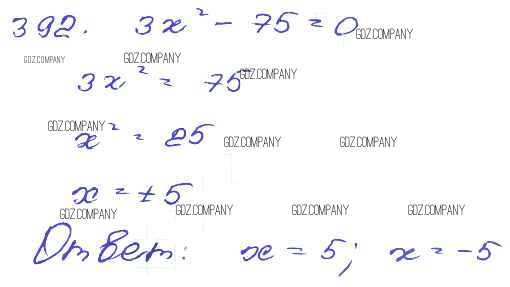 392. 3x² - 75 = 0
GDZ.COMPANY
GDZ.COMPANY GDZ.COMPANY
3x² = 75
GDZ.COMPANY
GDZ.COMPANY
x² = 25
GDZ.COMPANY GDZ.COMPANY
x = ±5
GDZ.COMPANY GDZ.COMPANY GDZ.COMPANY GDZ.COMPANY
Ответ: x = 5; x = -5